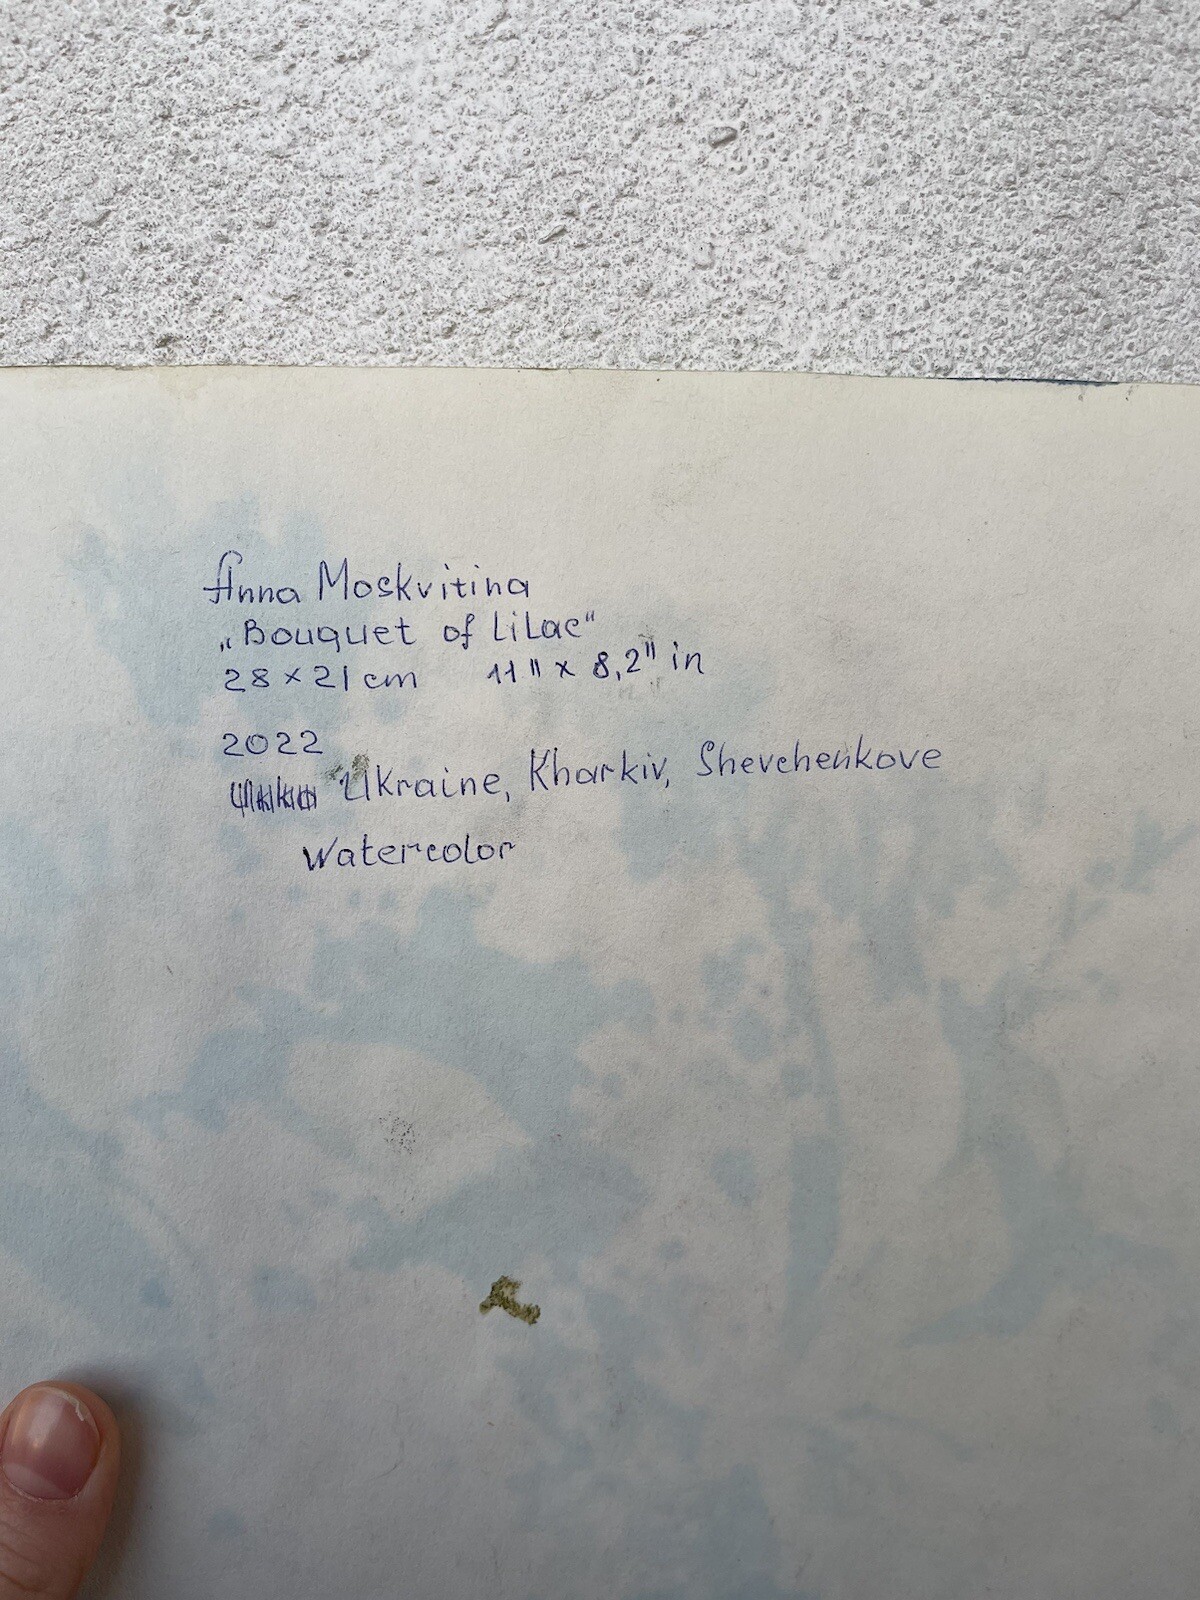 Anna Moskvitina
„Bouquet of Lilac"
28 x 21 cm 11" x 8,2" in
2022
Ukraine, Kharkiv, Shevchenkove
Watercolor